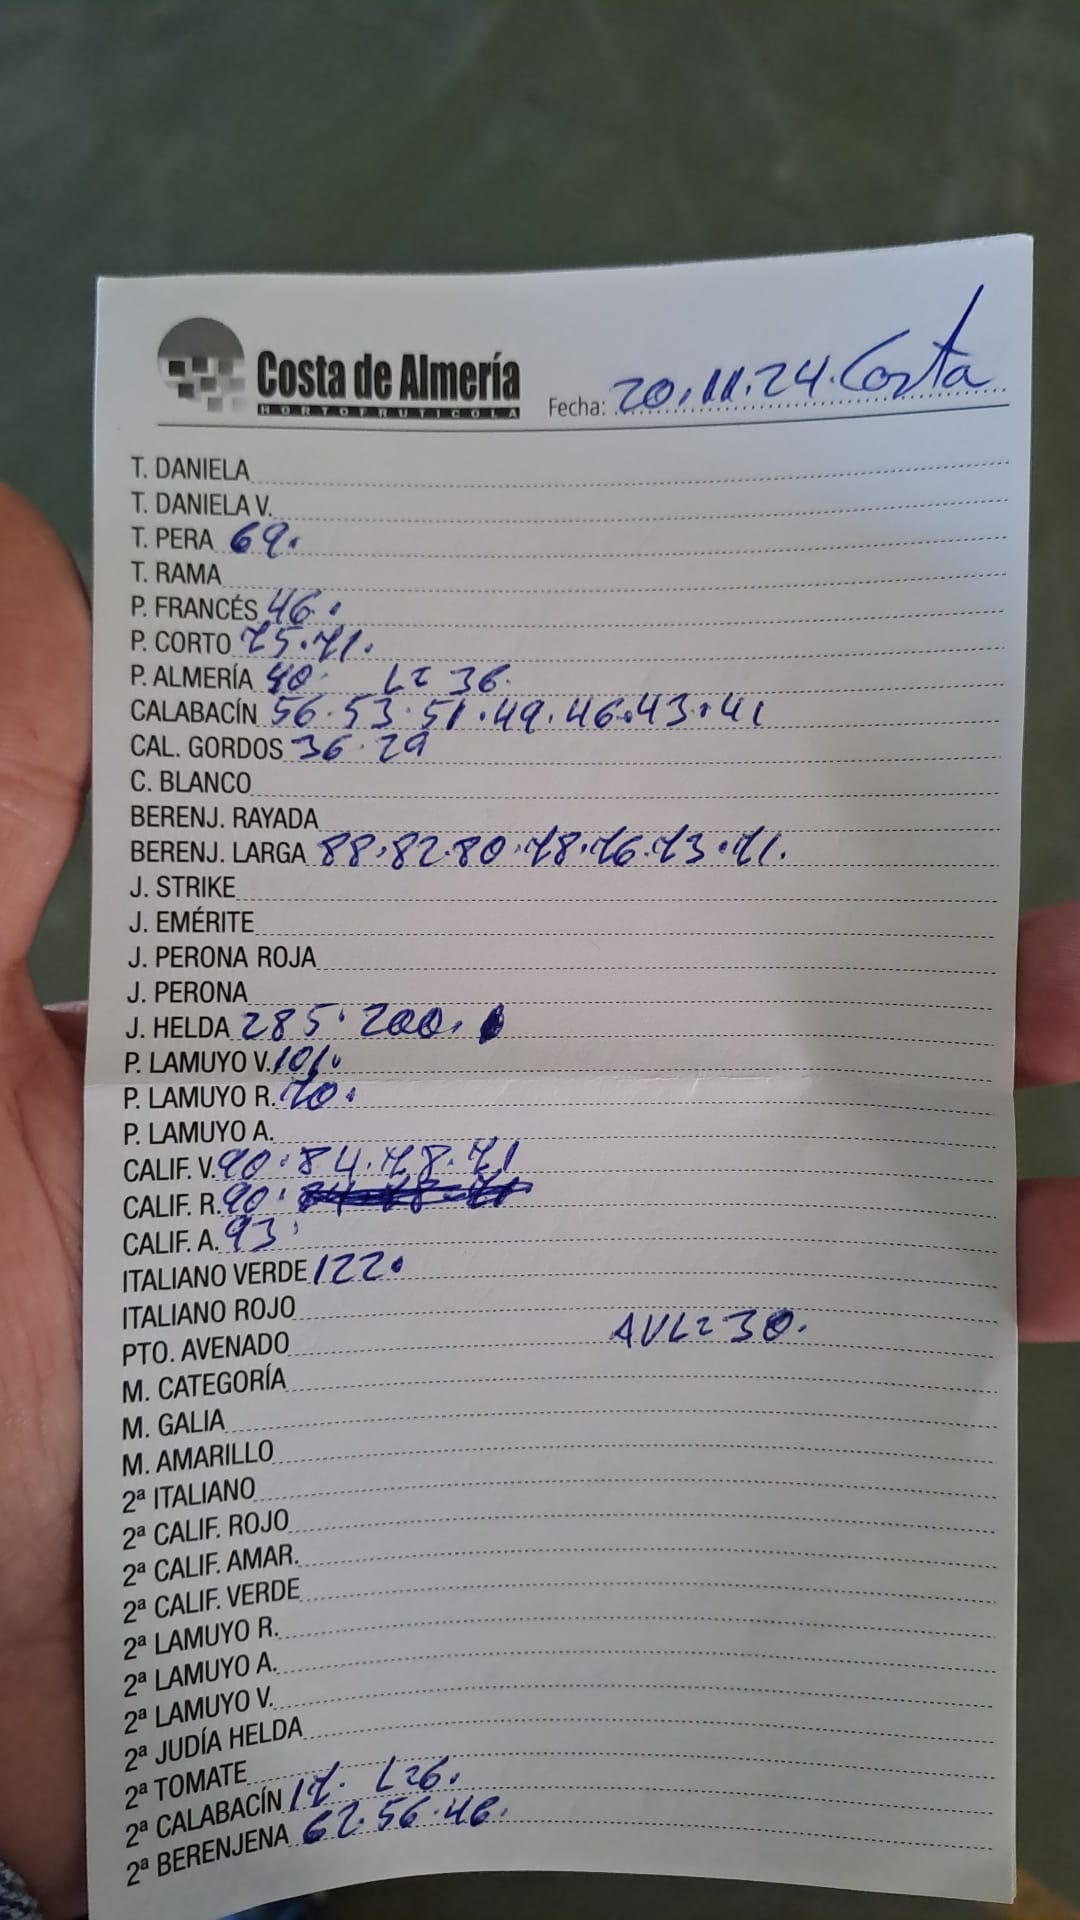 Costa de Almería
HORTOFRUTICOLA
Fecha: 20.11.24. Costa
T. DANIELA
T. DANIELA V.
T. PERA 69.
T. RAMA
P. FRANCÉS 46.
P. CORTO 75.71.
P. ALMERÍA 40. L= 36.
CALABACÍN 56.53.51.49.46.43.41
CAL. GORDOS 36.29
C. BLANCO
BERENJ. RAYADA
BERENJ. LARGA 88.82.80.78.76.73.71.
J. STRIKE
J. EMÉRITE
J. PERONA ROJA
J. PERONA
J. HELDA 285.200.
P. LAMUYO V. 101.
P. LAMUYO R. 70.
P. LAMUYO A.
CALIF. V. 90.84.78.71
CALIF. R. 90.
CALIF. A. 93.
ITALIANO VERDE 122.
ITALIANO ROJO
PTO. AVENADO AVL= 30.
M. CATEGORÍA
M. GALIA
M. AMARILLO
2ª ITALIANO
2ª CALIF. ROJO
2ª CALIF. AMAR.
2ª CALIF. VERDE
2ª LAMUYO R.
2ª LAMUYO A.
2ª LAMUYO V.
2ª JUDÍA HELDA
2ª TOMATE
2ª CALABACÍN 17. L=6.
2ª BERENJENA 62.56.46.